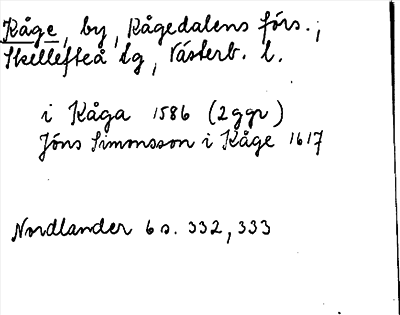 Kåge, by, Kågedalens förs.,
Skellefteå tg, Västerb. l.
i Kåga 1586 (2 ggr)
Jöns Simonsson i Kåge 1617
Nordlander 6 s. 332, 333